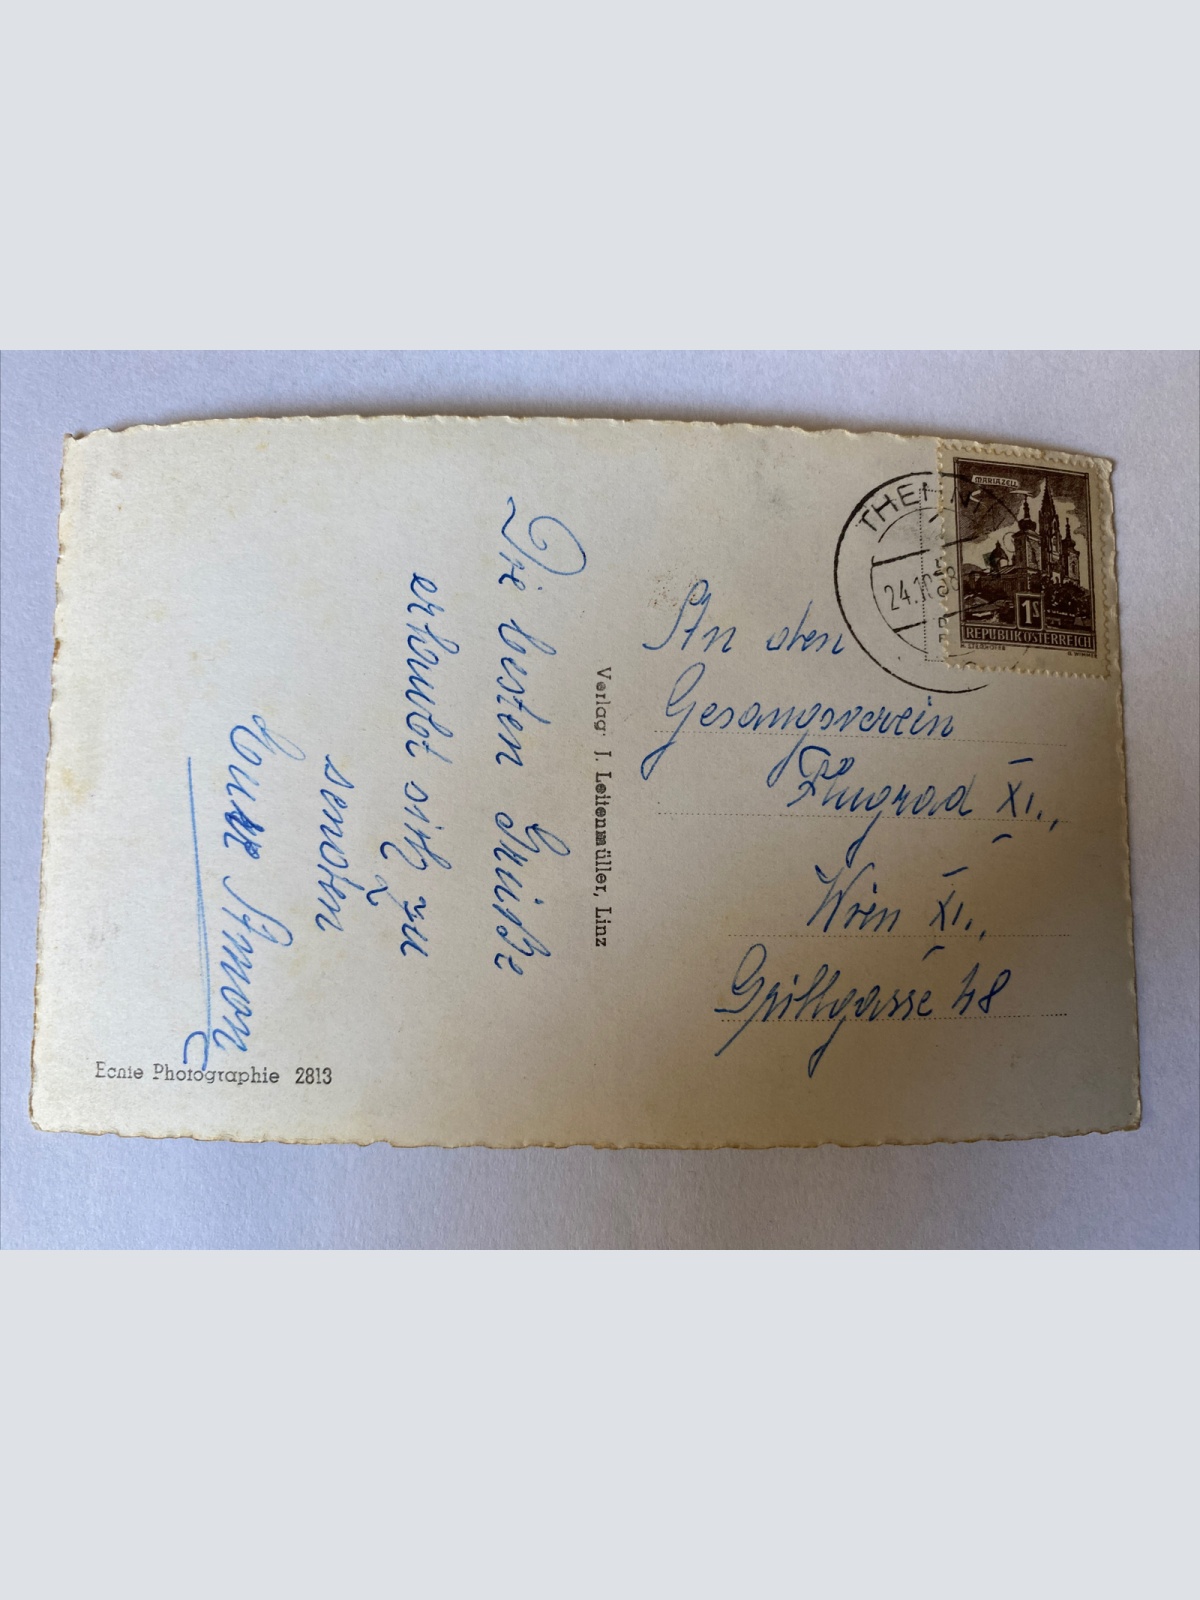 Die besten Grüße
erlaubt sich zu
senden
Simon
Echte Photographie 2813
Verlag J. Leitenmüller, Linz
24.10.58
MARIAZELL
1S
REPUBLIK ÖSTERREICH
An den
Gesangsverein
XI.,
Wien XI.,
Grillgasse 48